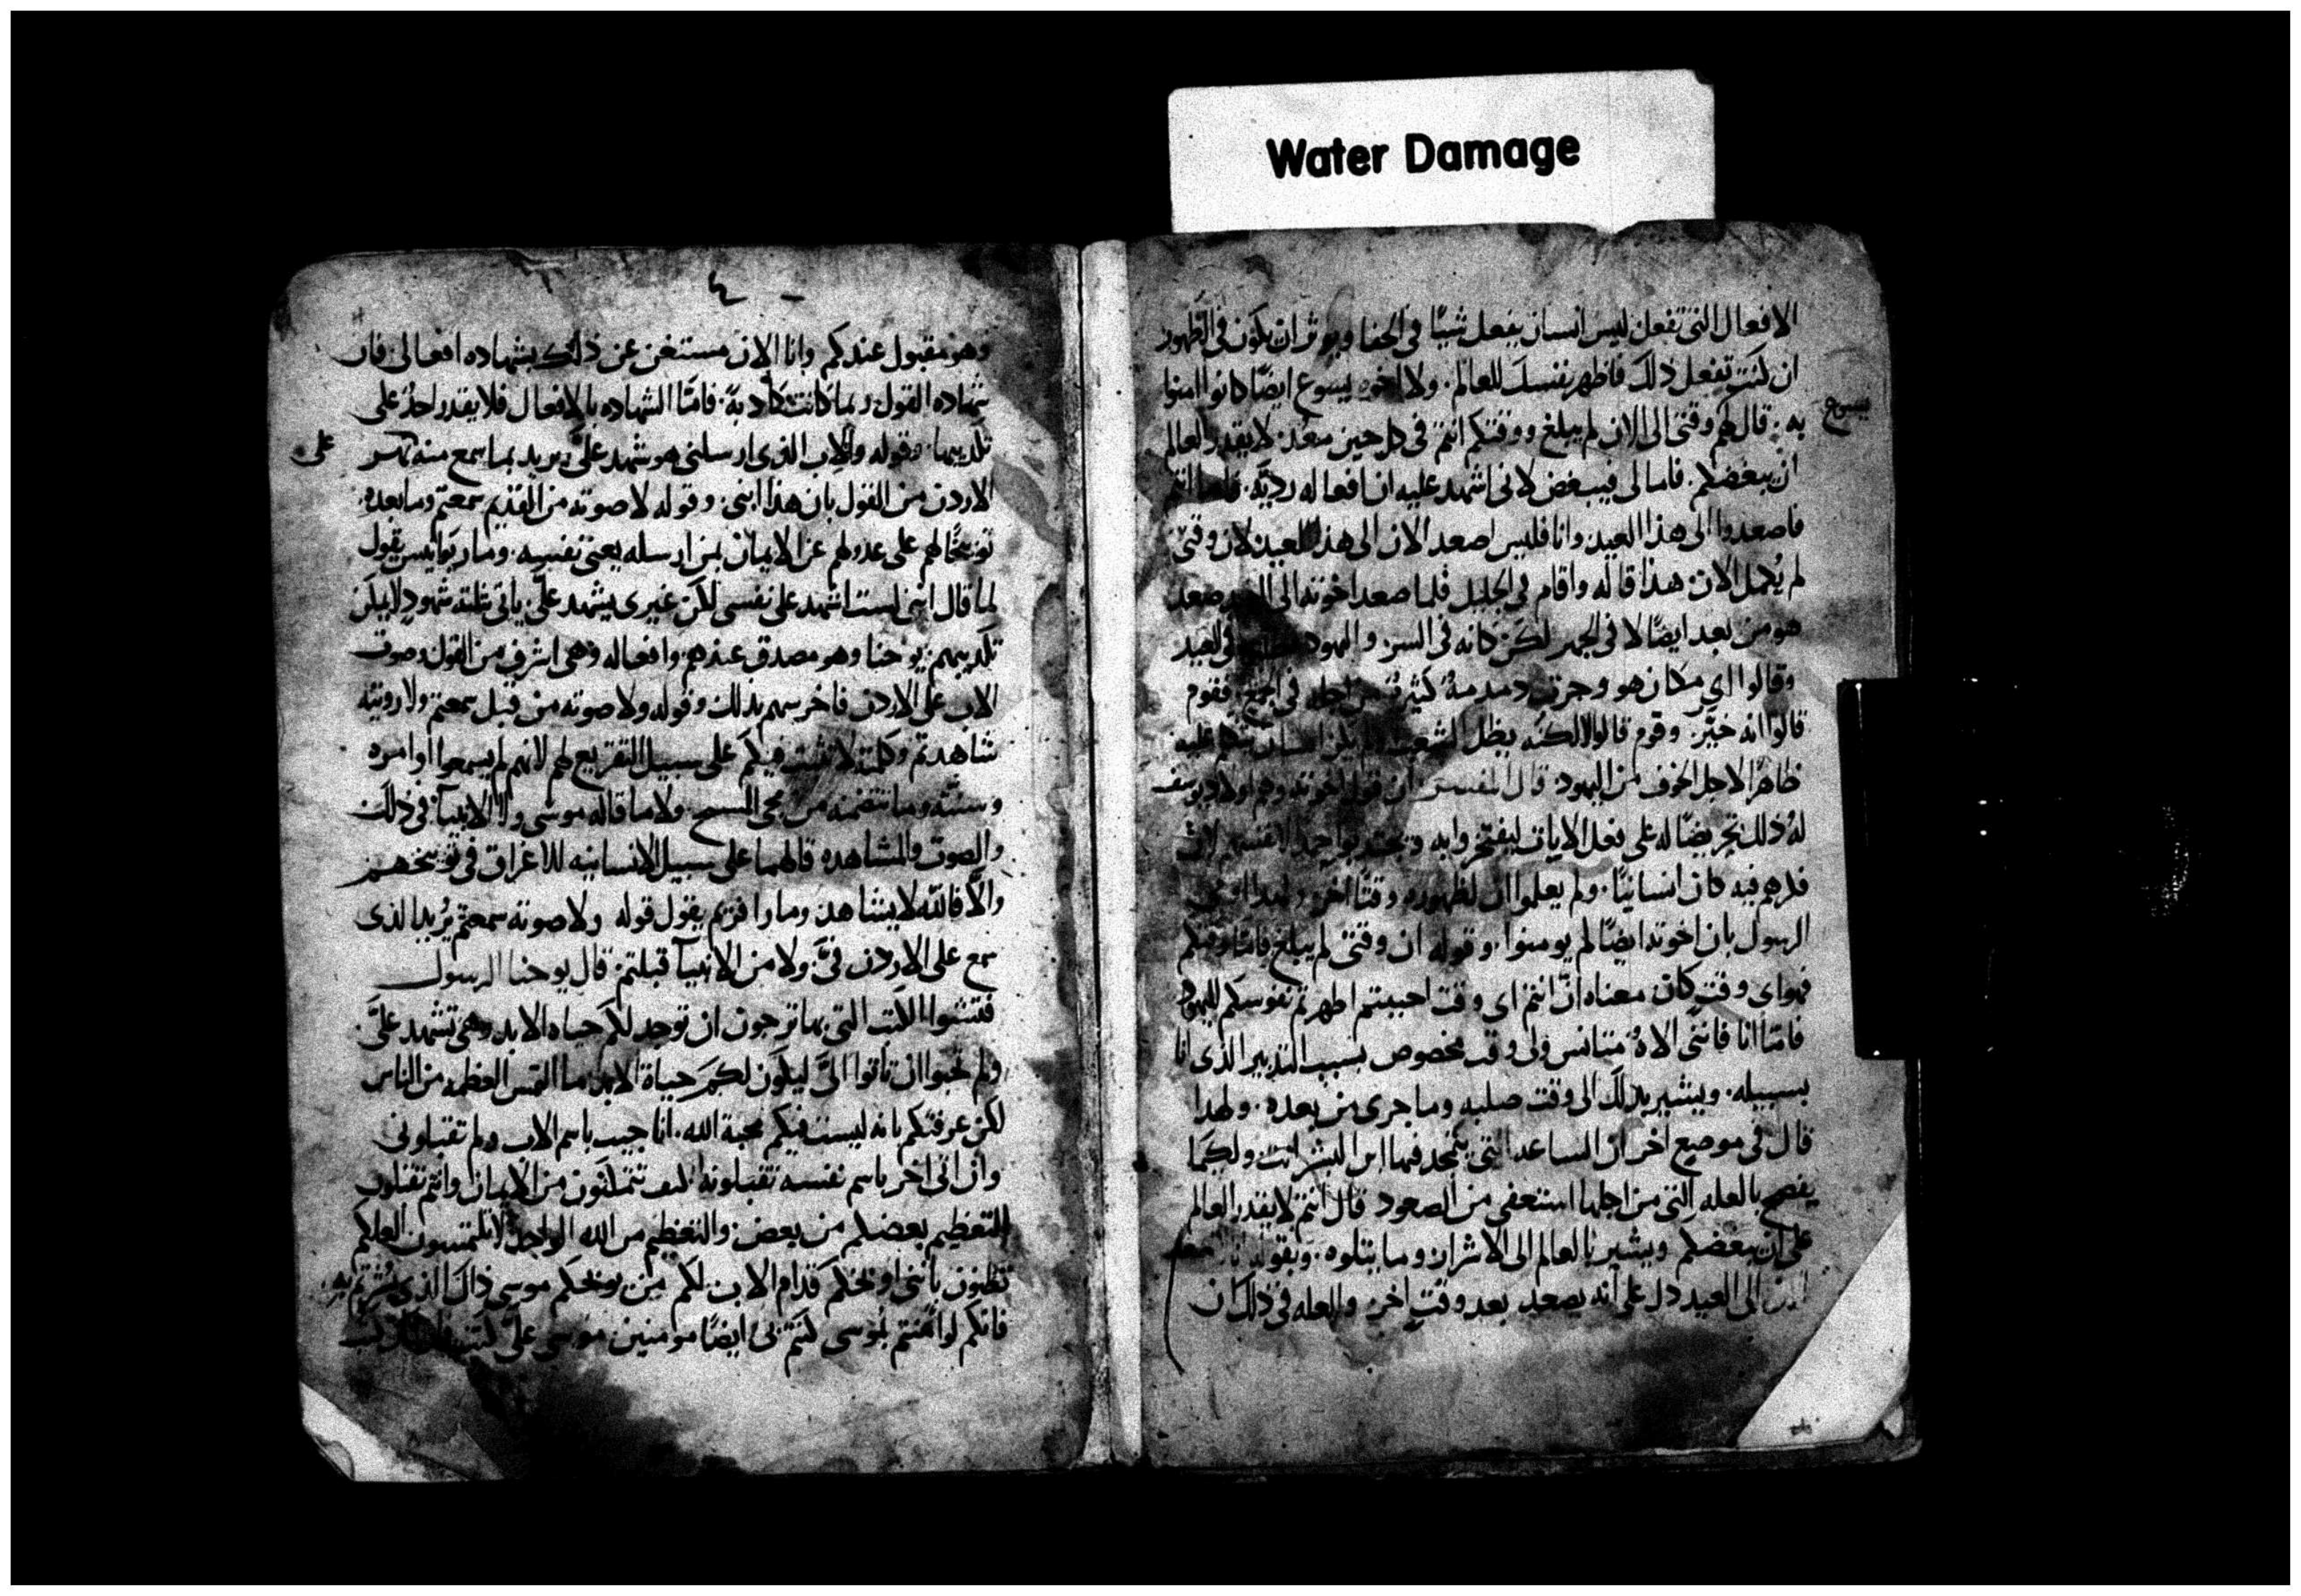 Water Damage
الافعال التى تفعل ليس انسان يفعل شيًا فى الخفا ويوثر ان يكون فى الظهور
ان كنت تفعل ذلك فاظهر نفسك للعالم. ولا اخوه يسوع ايضًا كانوا امنوا
يسوع
به. قال لهم وقتى الى الان لم يبلغ ووقتكم انتم فى كل حين معد. لا يقدر العالم
ان يبغضكم. فاما لى فيبغض لانى اشهد عليه ان افعاله رديّه. انتم
فاصعدوا الى هذا العيد وانا فليس اصعد الان الى هذا العيد لان وقتى
لم يُكمل الان هذا قاله واقام فى الجليل فلما صعد اخوته الى صعد
هو من بعد ايضًا لا فى الجهر لكن كانه فى السر. واليهود فى العيد
وقالوا اى مكان هو وجرت دمدمةٌ كثيرة من اجله فى الجمع. فقوم
قالوا انه خيّر. وقوم قالوا لا لكنّه يضل الشعب. عليه
ظاهرًا لاجل الخوف من اليهود. قال المفسر ان قول اخوته وهم اولاد يوسف
لهُ ذلك تحريضًا له على فعل الايات ليفتخروا به
فكرهم فيه كان انسانيًا. ولم يعلموا ان لظهوره وقتًا اخر.
الرسول بان اخوته ايضًا لم يومنوا. وقوله ان وقتى لم يبلغ فامّا وقتكم
فهو اى وقتٍ كان معناه انّ انتم اى وقت احببتم اظهرتم نفوسكم لليهود
فامّا انا فاننى الاهٌ متانس ولى وقت مخصوص بسبب التدبير الذى انا
بسبيله. ويشير بذلك الى وقت صلبه وما جرى من بعده. ولهدا
قال فى موضع اخر ان الساعه التى يتمجد فيها ابن البشر اتت ولكيما
يفصح بالعله التى من اجلها استعفى من الصعود قال انتم لا يقدر العالم
على ان يبغضكم ويشير بالعالم الى الاشرار وما يتلوه. وبقوله
الى العيد دل على انه يصعد بعد وقتٍ اخر. والعله فى ذلك ان
وهو مقبول عندكم وانا الان مستغن عن ذلك بشهاده افعالى فان
شهاده القول ربما كانت كاذبةً. فامّا الشهاده بالافعال فلا يقدر احدٌ على
تكذيبها. وقوله والاب الذى ارسلنى هو شهد علىّ يريد بما سمع منه نهر
على
الاردن من القول بان هذا ابنى. وقوله لا صوته من القديم سمعتم وما بعده.
توبيخًا لهم على عدولهم عن الايمان بمن ارسله يعنى نفسه. ومار يوانيس يقول
لما قال اننى لست اشهد على نفسى لكن غيرى يشهد علىّ ياتى بثلثه شهودٍ لا يمكن
تكذيبهم. يوحنا وهو مصدق عندهم وافعاله وهى اشرف من القول وصوت
الاب على الاردن فاخرسهم بذلك وقوله ولا صوته من قبل سمعتم ولا رويته
شاهدتم وكلمته لا تثبت فيكم على سبيل التقريع لهم لانهم لم يسمعوا اوامره
وسننه وما تتضمنه من مجى المسيح ولا ما قاله موسى ولا الانبيآ فى ذلك
والصوت والمشاهده قالهما على سبيل الانسانيه للاغراق فى توبيخهم
والّا فالله لا يشاهد. ومار افريم يقول قوله ولا صوته سمعتم يُريد الذى
سمع على الاردن فىَّ. ولا من الانبيآ قبلتم. قال يوحنا الرسول
فتشوا الكتب التى بها ترجون ان توجد لكم حياه الابد. وهى تشهد علىّ
ولم تحبوا ان تاتوا الىّ ليكون لكم حياة الابد. ما التمس العظمه من الناس
لكن عرفتكم بانه ليست فيكم محبة الله. انا جيت باسم الاب ولم تقبلونى
وان اتى اخر باسم نفسه تقبلونه. كيف تتمكنون من الايمان وانتم تقبلون
التعظيم بعضكم من بعض. والتعظيم من الله الواحد لا تلتمسون. العلكم
تظنون باننى اوبخكم قدام الاب لكم من يوبخكم موسى ذاك الذى بُشرتم به.
فانكم لو امنتم بموسى كنتم بى ايضًا مومنين موسى علىّ كتب.